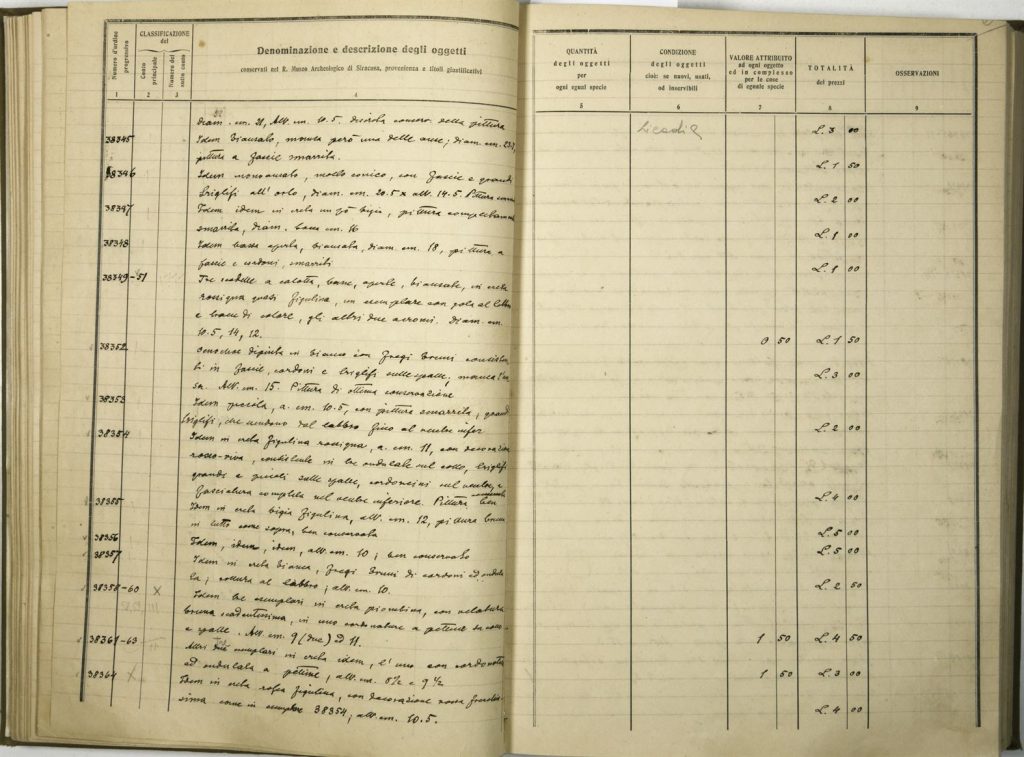 Numero d'ordine progressivo
CLASSIFICAZIONE del
Conto principale
Numero del sotto conto
Denominazione e descrizione degli oggetti
conservati nel R. Museo Archeologico di Siracusa, provenienza e titoli giustificativi
1 2 3 4
22
diam. cm. 21, Alt. cm. 10.5. discreta conserv. della pittura
38345 Idem biansato, monco però una delle anse; diam. cm.
pittura a fascie smarrita.
38346 Idem monoansato, molto conico, con fascie e grandi
triglifi all'orlo, diam. cm. 20.5 x alt. 14.5. Pittura
38347 Idem idem in creta un pò bigia, pittura completamente
smarrita, diam. bocca cm. 16
38348 Idem bassa aperta, biansata, diam. cm. 18, pittura a
fascie e cordoni, smarriti
38349-51 Tre scodelle a calotta, basse, aperte, biansate, in creta
rossigna quasi figulina, un esemplare con gola al labbro
e bande di colore, gli altri due acromi. Diam. cm.
10.5, 14, 12.
38352 Oenochoe dipinta in bianco con fregi bruni consisten
ti in fascie, cordoni e triglifi sulle spalle, manca l'an
sa. Alt. cm. 15. Pittura di ottima conservazione
38353 Idem piccola, a. cm. 10.5, con pittura smarrita, grandi
triglifi, che scendono dal labbro fino al ventre infer
38354 Idem in creta figulina rossigna, a. cm. 11, con decorazione
rosso-viva, consistente in tre ondulate sul collo, triglifi
grandi e piccoli sulle spalle, cordoncini sul ventre, e
fasciatura completa nel ventre inferiore. Pittura ben conservata
38355 Idem in creta bigia figulina, alt. cm. 12, pittura bruna
in tutto come sopra, ben conservata
38356 Idem, idem, idem, alt. cm. 10; ben conservato
38357 Idem in creta bianca, fregi bruni di cordoni ed ondula
ta; rottura al labbro; alt. cm. 10.
38358-60 X Idem tre esemplari in creta piombina, con velatura
bruna scadentissima, in uno cordonature a pettine su collo
e spalle. Alt. cm. 9 (due) ed 11.
38361-63 Altri tre esemplari in creta idem, l'uno con cordonata
ed ondulata a pettine, alt. cm. 8½ e 9½
38364 X Idem in creta rossa figulina, con decorazione rossa
sima come in esemplare 38354; alt. cm. 10.5.
QUANTITÀ degli oggetti per ogni egual specie
CONDIZIONE degli oggetti cioè: se nuovi, usati, od inservibili
VALORE ATTRIBUITO ad ogni oggetto ed in complesso per le cose di eguale specie
TOTALITÀ dei prezzi
OSSERVAZIONI
5 6 7 8 9
L. 3 00
L. 1 50
L. 2 00
L. 1 00
L. 1 00
0 50 L. 1 50
L. 3 00
L. 2 00
L. 4 00
L. 5 00
L. 5 00
L. 2 50
1 50 L. 4 50
1 50 L. 3 00
L. 4 00